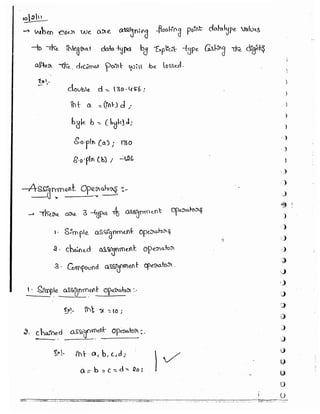 10/2/11
→ when ever we are assigning floating point datatype values
to the integral data types by Explicit type casting the digits
after the decimal point will be lossed.
Ex:-
double d = 130.456;
int a = (int) d;
byte b = (byte) d;
S.o.pln (a); 130
S.o.pln (b); -126
Assignment Operators :-
→ There are 3 types of assignment operators
1. Simple assignment operators
2. chained assignment operators
3. Compound assignment operators.
1. Simple assignment operators :-
Ex:- int x = 10;
2. chained assignment operators :-
Ex:- int a, b, c, d;
a = b = c = d = 20;